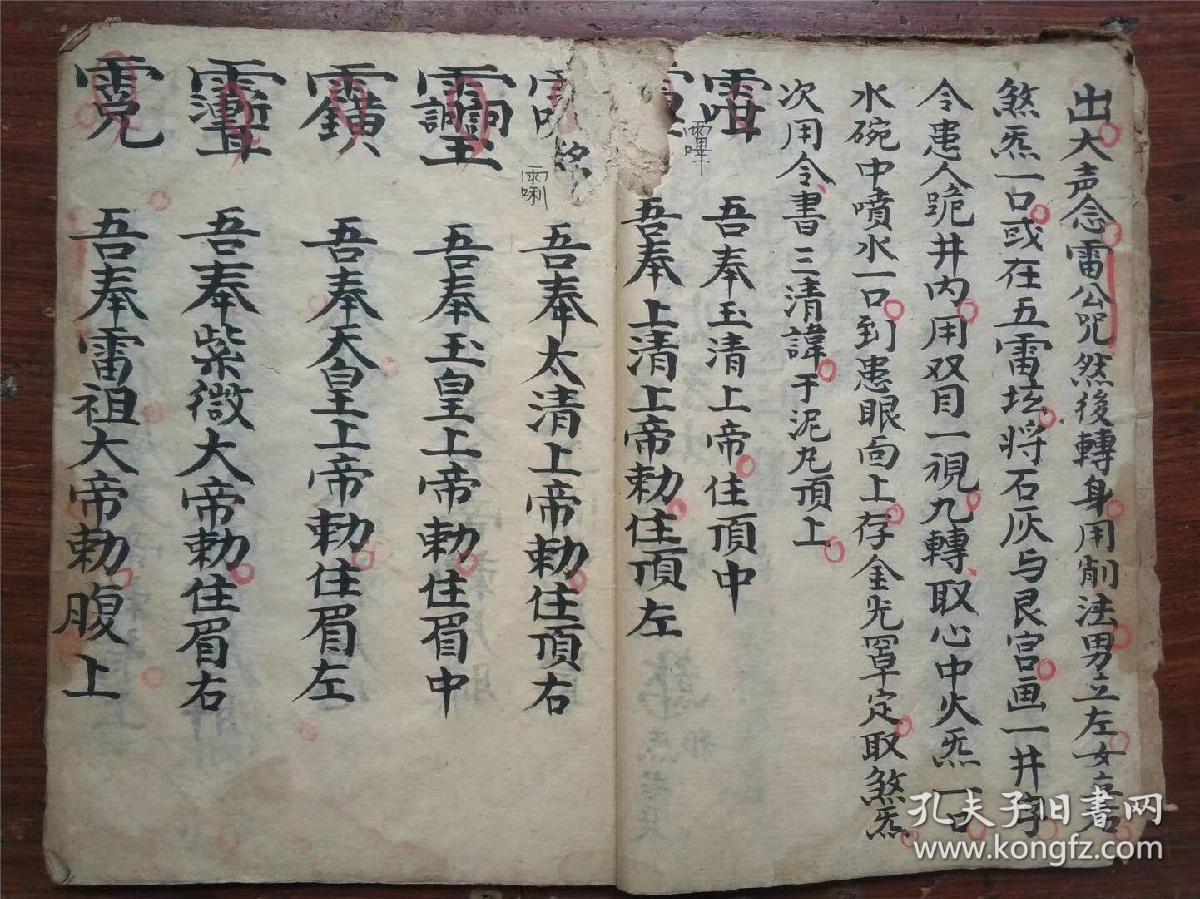 出大声念雷公咒然後轉身用削法男立左女立右
煞炁一口或在五雷坛将石灰与艮宫画一井字
令患人跪井内用双目一視九轉取心中火炁一口
水碗中噴水一口到患眼面上存金光罩定取煞炁
次用令書三清諱于泥丸頂上
吾奉玉清上帝住頂中
吾奉上清上帝勅住頂左
吾奉太清上帝勅住頂右
吾奉玉皇上帝勅住眉中
吾奉天皇上帝勅住眉左
吾奉柴微大帝勅住眉右
吾奉雷祖大帝勅腹上
孔夫子旧書网
www.kongfz.com